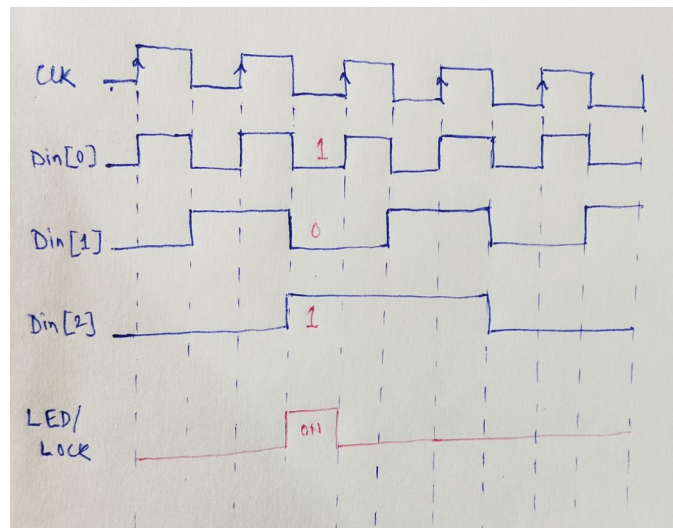 CLK
Din[0] 1
Din[1] 0
Din[2] 1
LED/
LOCK
ON